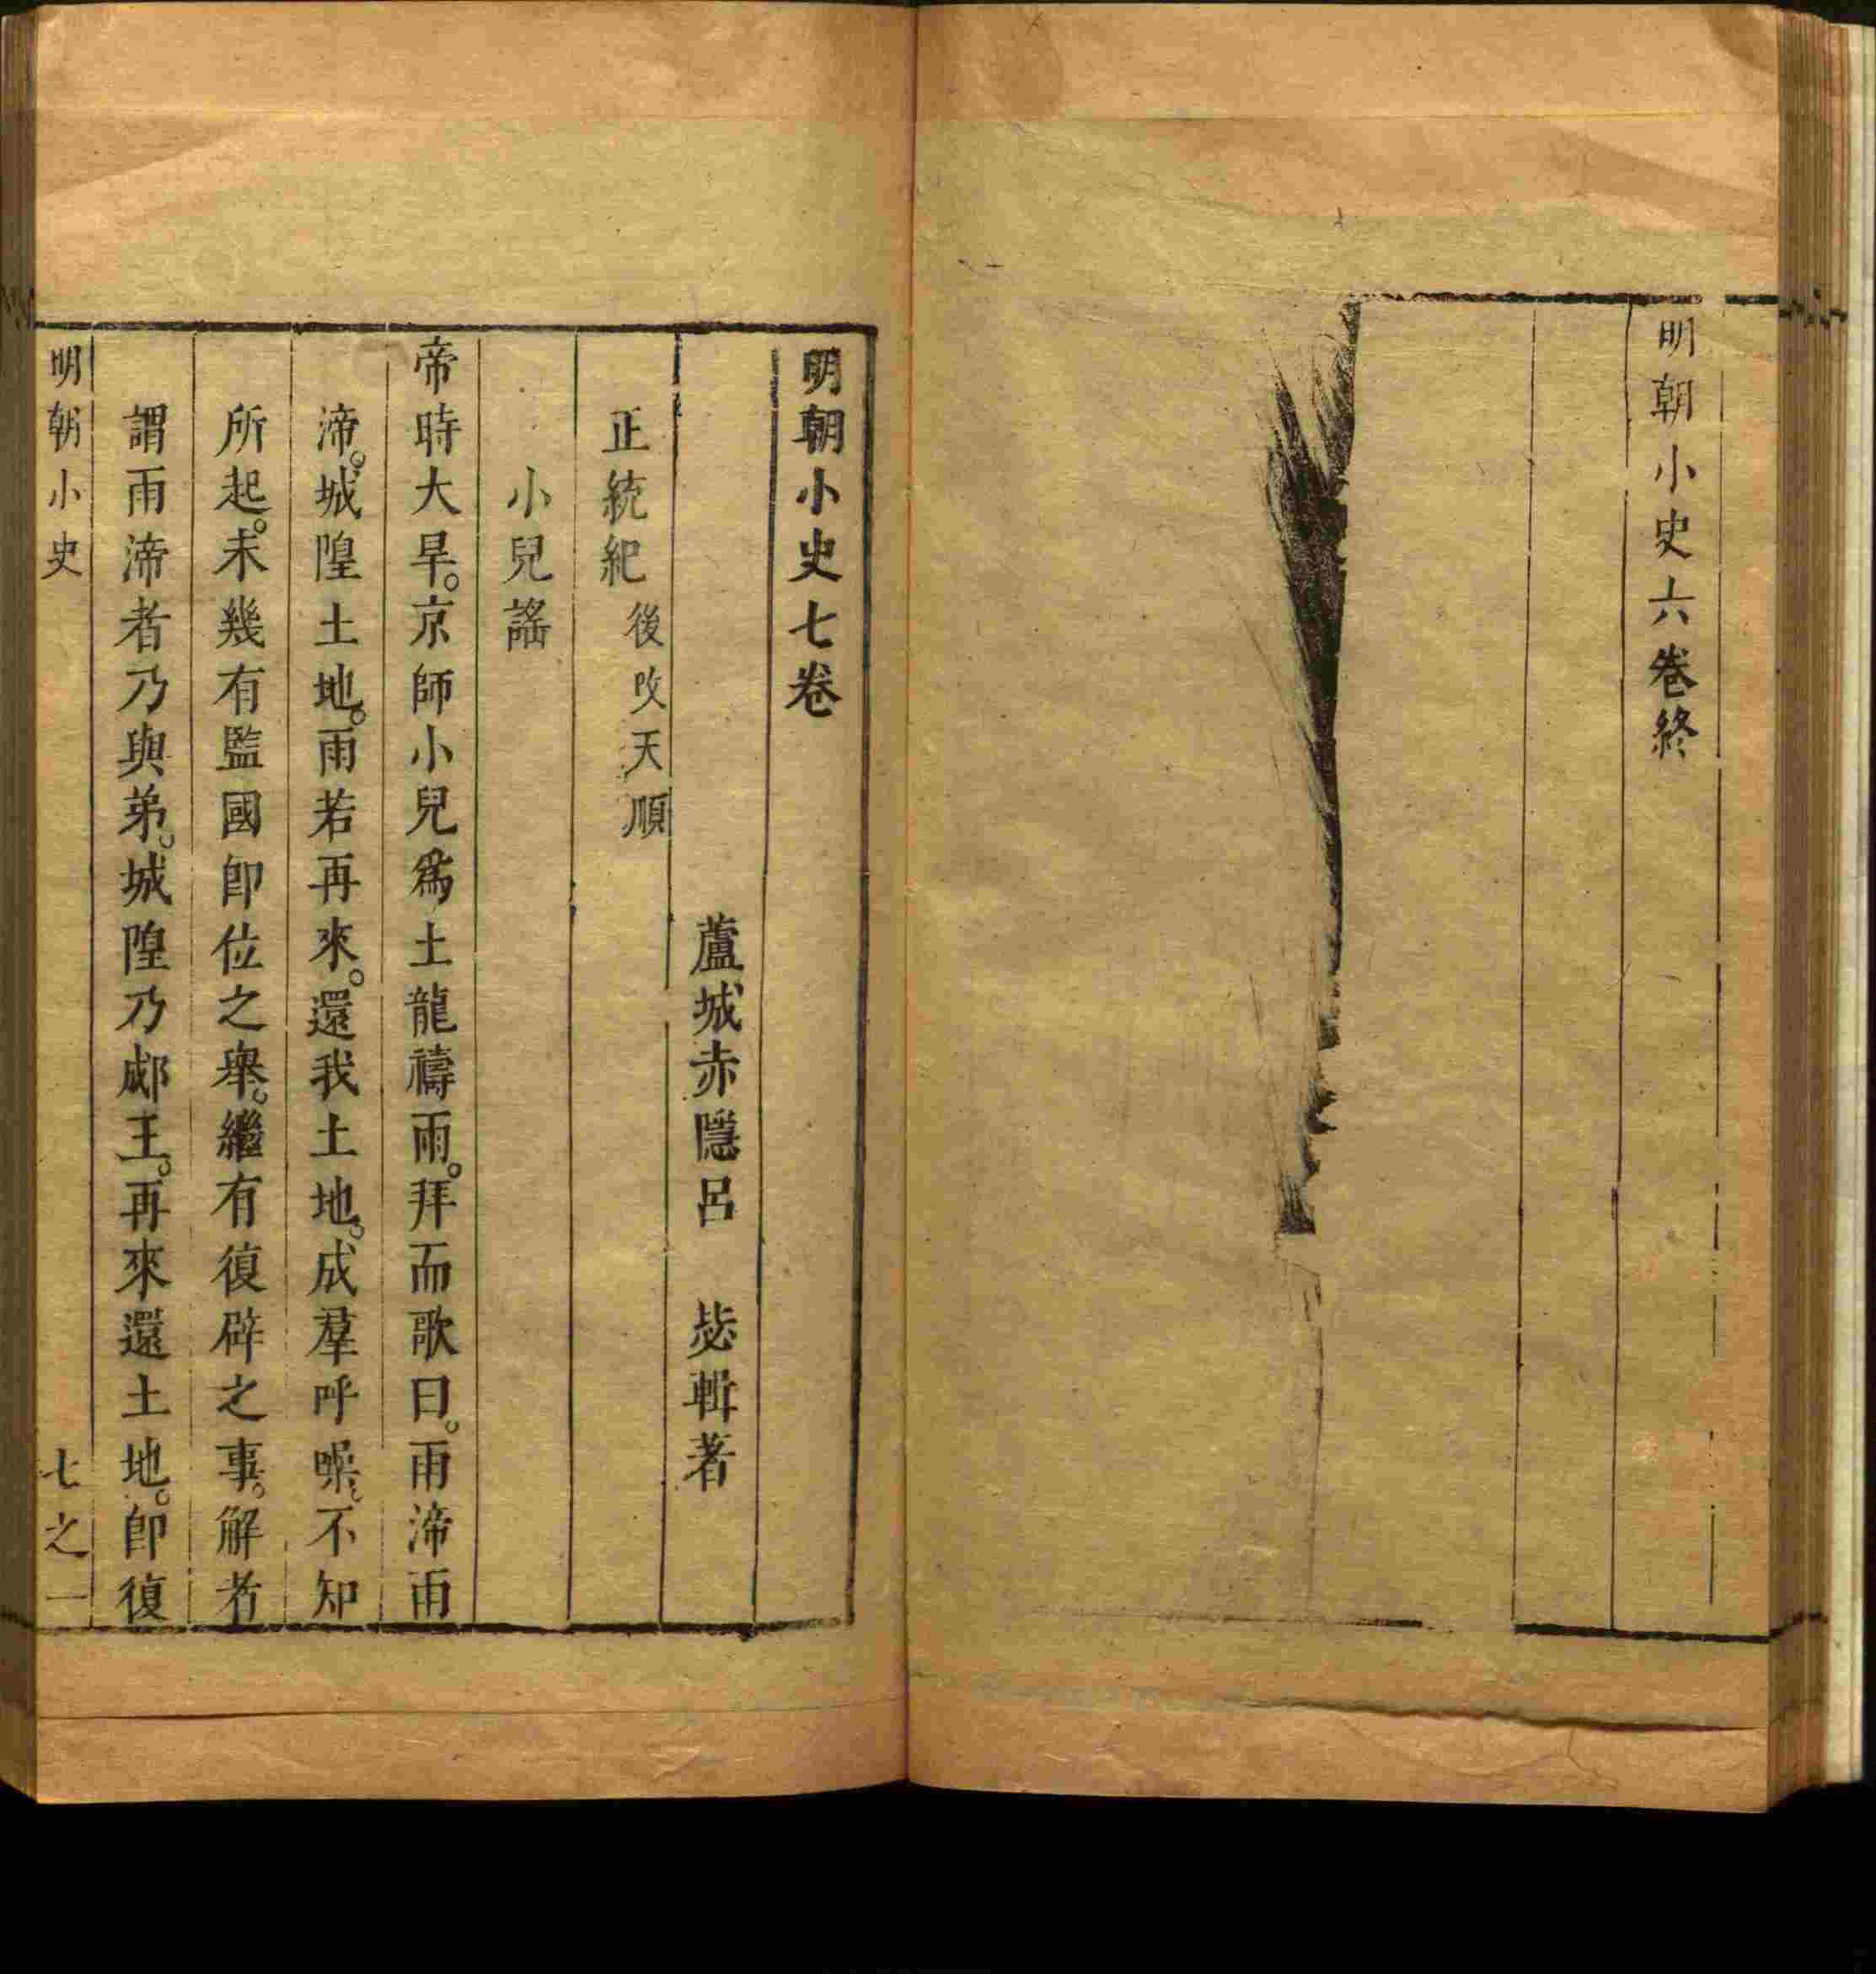 明朝小史六卷終
明朝小史七卷
蘆城赤隱呂 毖輯著
正統紀 後改天順
小兒謠
帝時大旱。京師小兒爲土龍禱雨。拜而歌曰。雨渧雨
渧。城隍土地。雨若再來。還我土地。成羣呼噪。不知
所起。未幾有監國卽位之舉。繼有復辟之事。解者
謂雨渧者乃與弟。城隍乃郕王。再來還土地。卽復
明朝小史 七之一